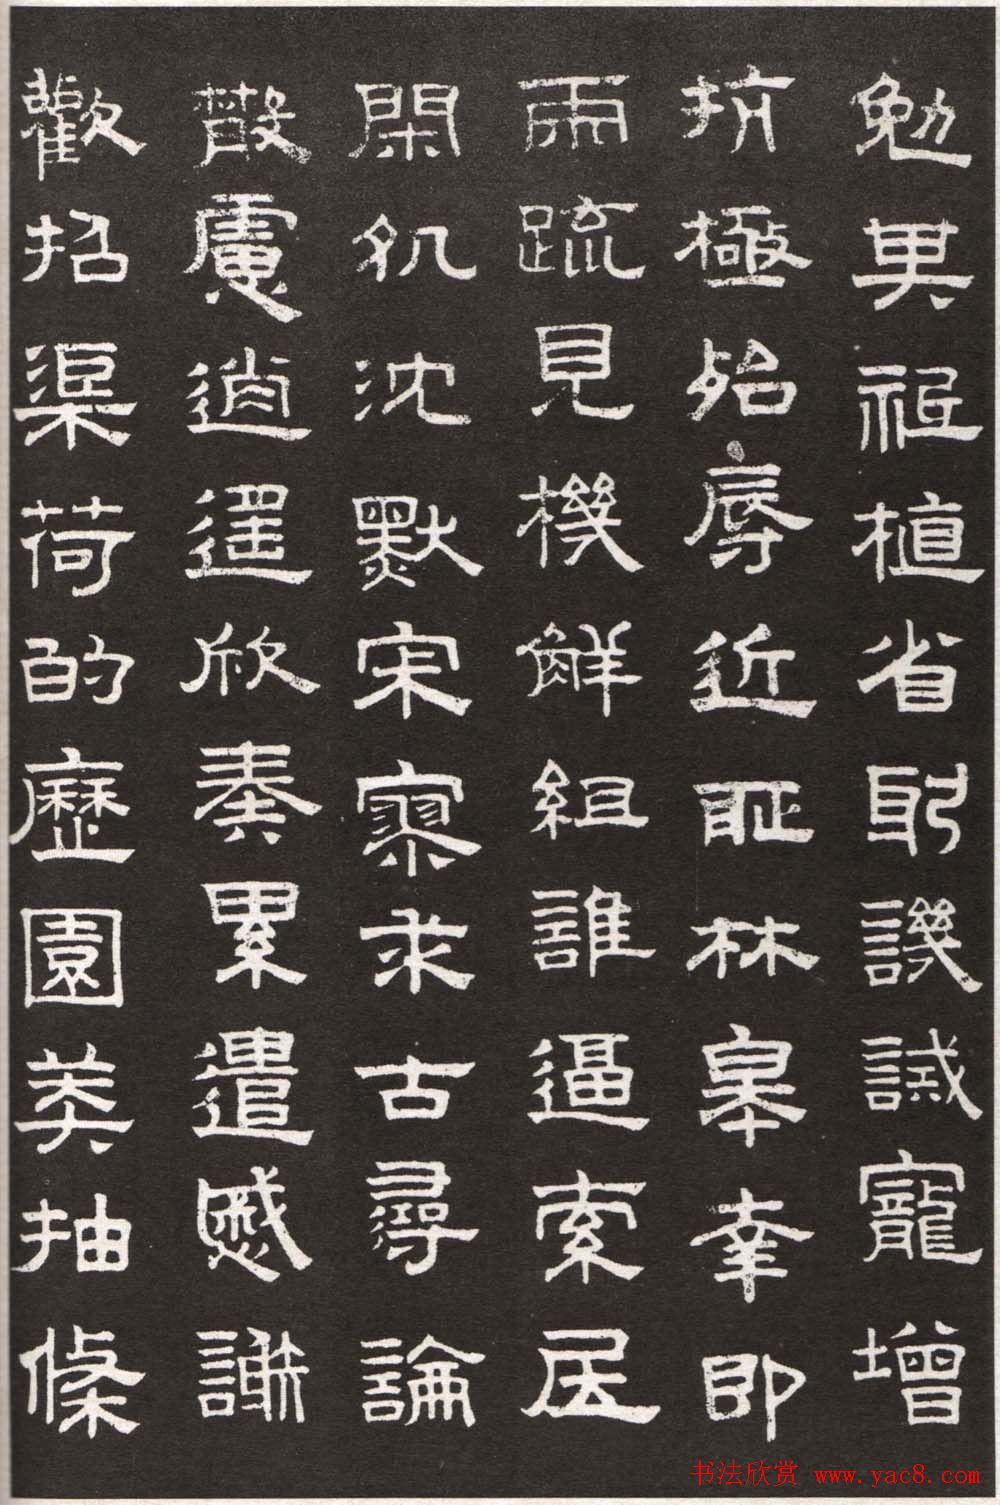 勉其祗植省躬譏誡寵增
抗極殆辱近耻林皋幸即
兩疏見機解組誰逼索居
閑処沈默寂寥求古尋論
散慮逍遙欣奏累遣慼謝
歡招渠荷的歷園莽抽條
书法欣赏 www.yac8.com